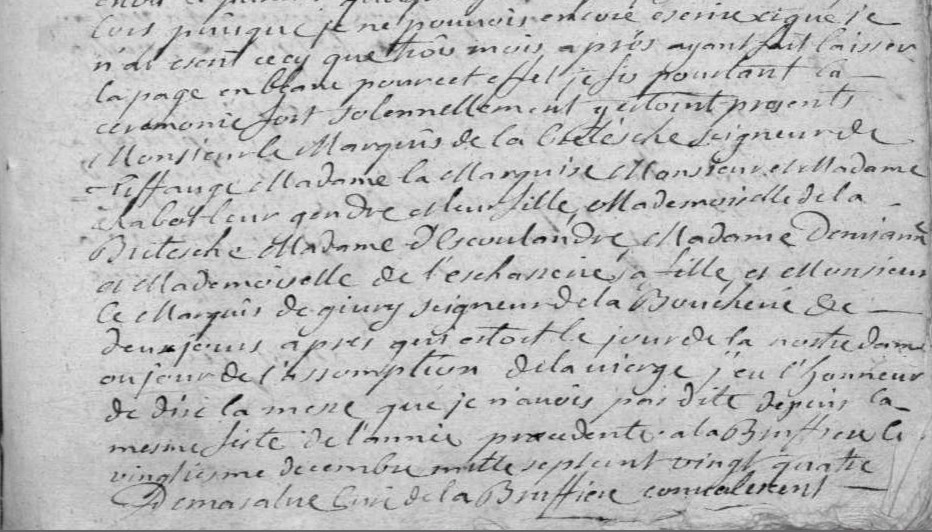 lors puisque je ne pouvois encore escrire et que je
n'ai escrit cecy que trois mois aprés ayant fait laisser
la page en blanc pour cet effet, je fis pourtant la
ceremonie fort solennellement y estoint presents
Monsieur le Marquis de la Bretesche seigneur de
Tiffauge Madame la Marquise Monsieur et Madame
Chabot leur gendre et leur fille, Mademoiselle de la
Bretesche Madame d'Escoulandre, Madame
et Mademoiselle de l'eschasserie sa fille, et Monsieur
le Marquis de givry seigneur de la Boucherie &c
deux jours aprés qui estoit le jour de la nostre dame
ou jour de l'Assomption de la vierge j'eu l'honneur
de dire la messe que je n'avois pas dite depuis la
mesme feste de l'année precedente. a la Bruffiere le
vingtiesme decembre mille sept cent vingt quatre
Curé de la Bruffiere